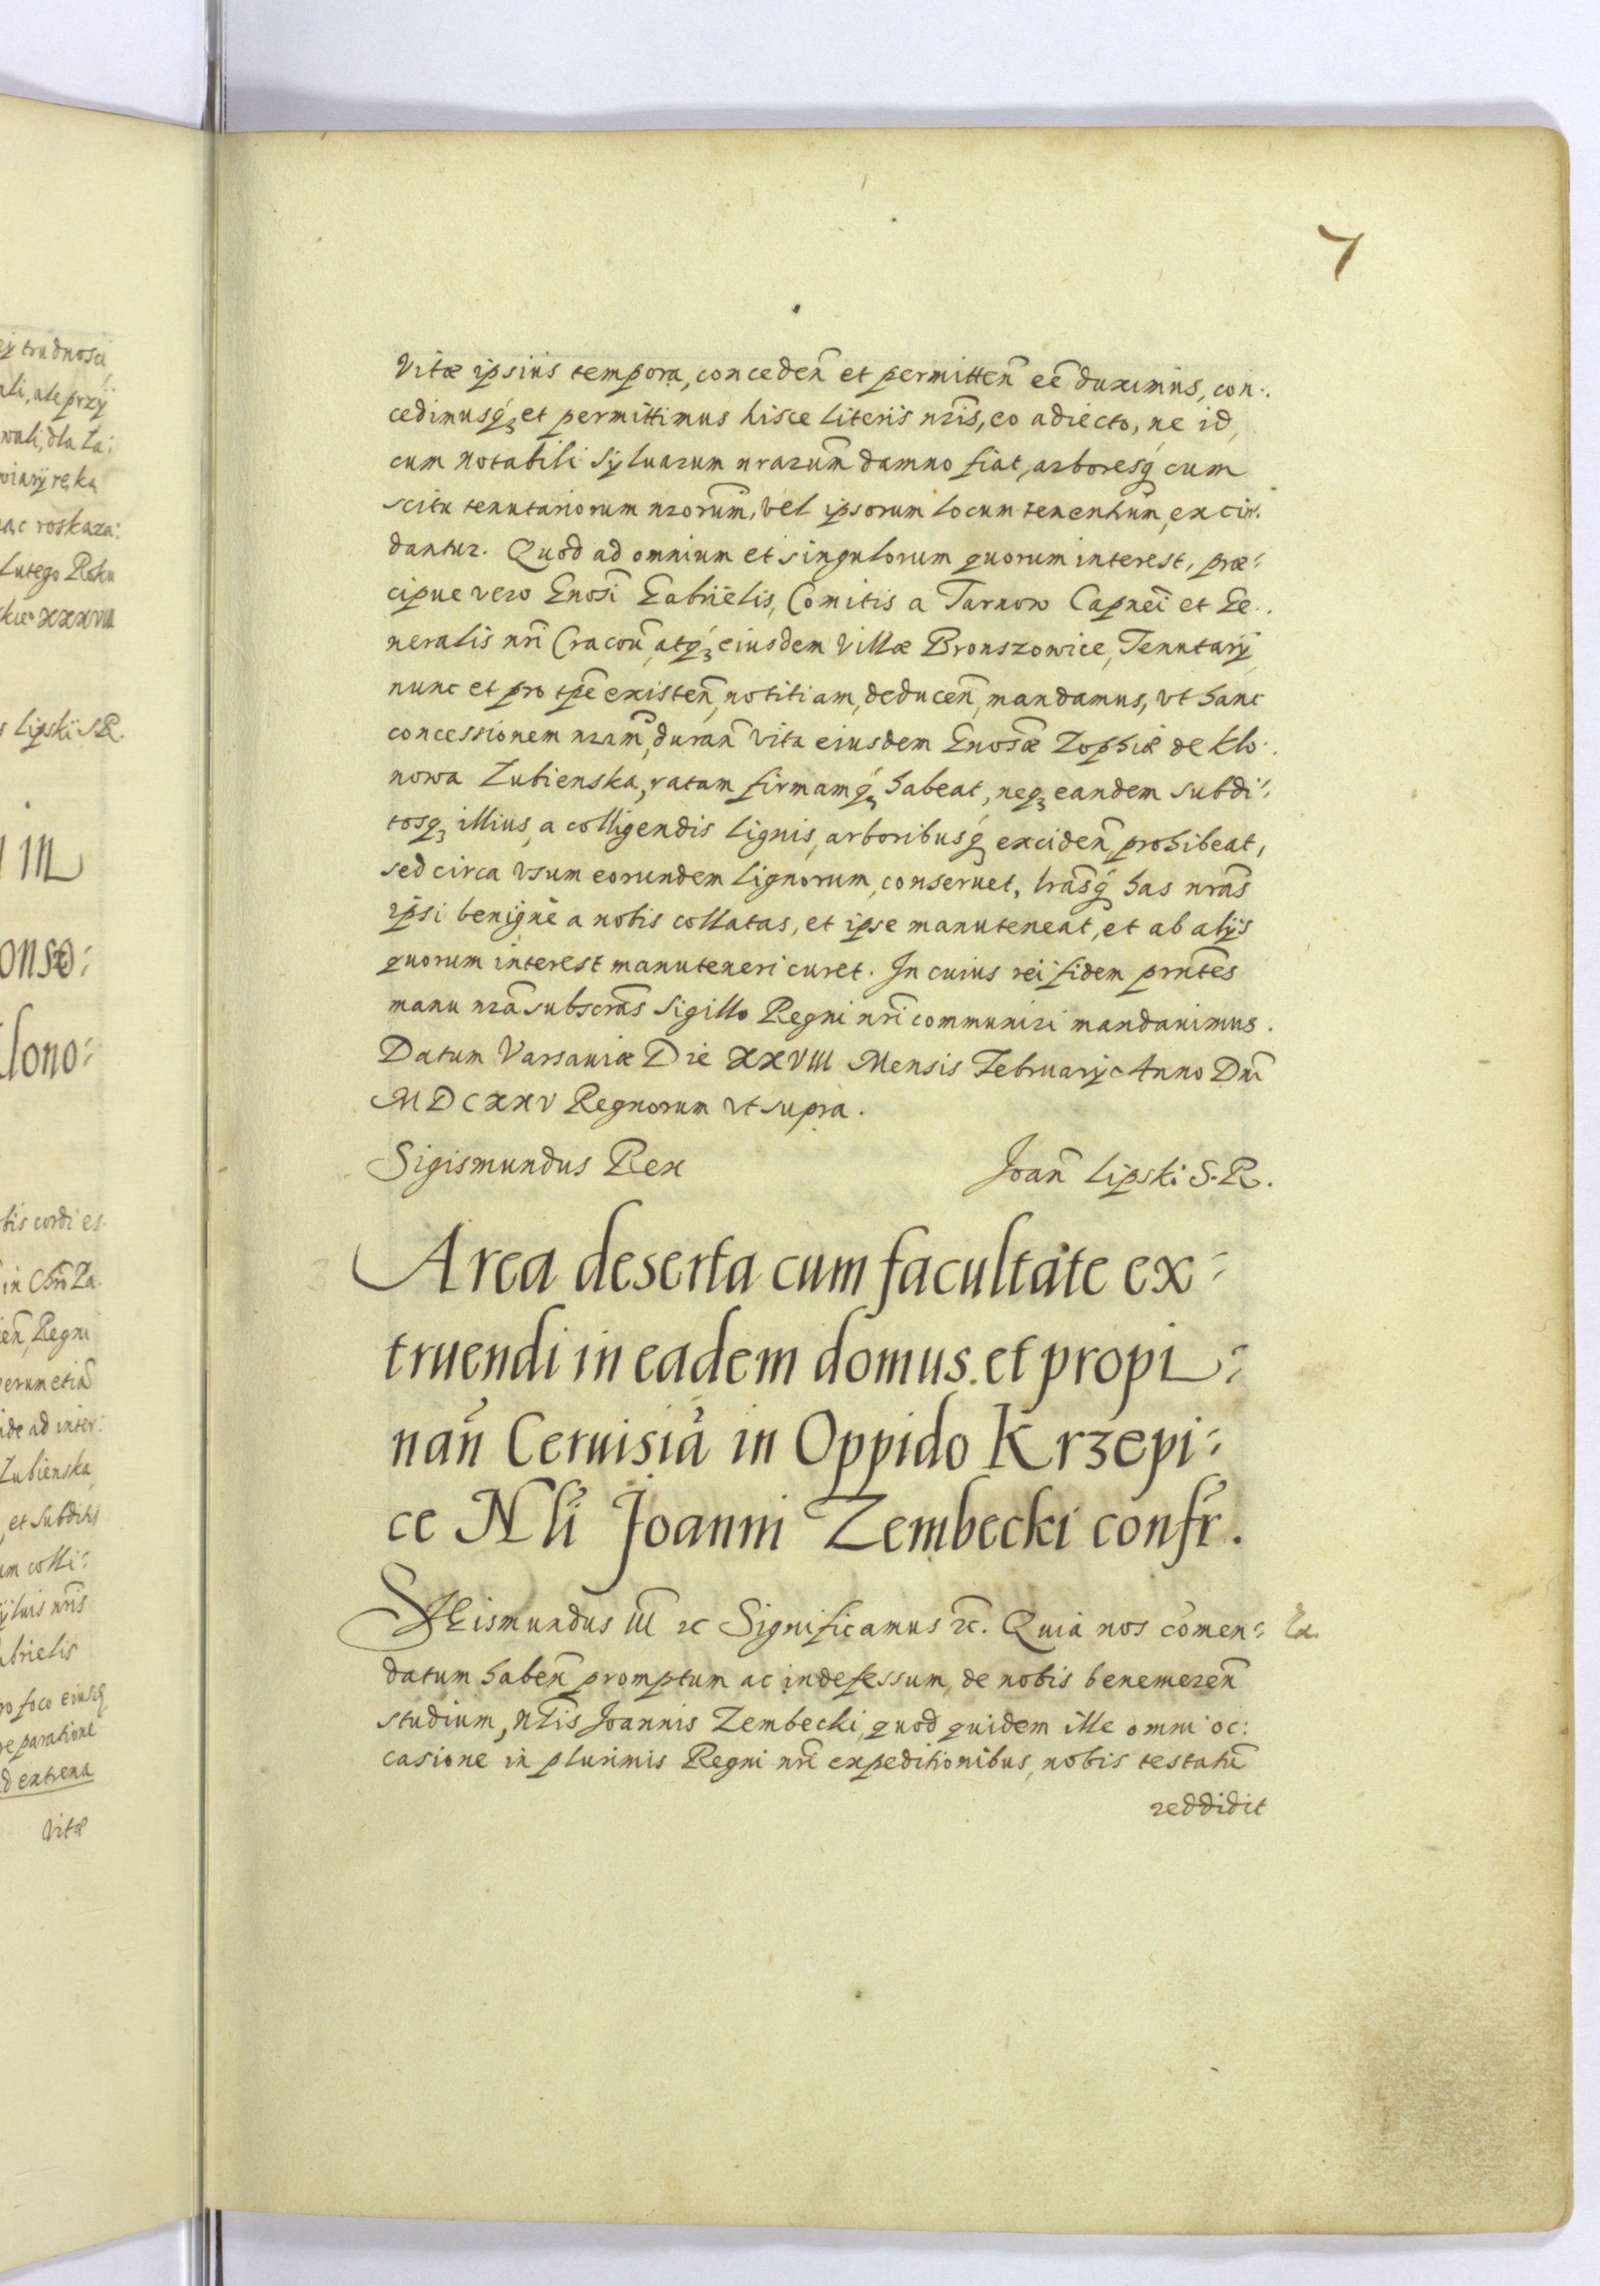 7
Vitæ ipsius tempora, conceden̄ et permitten̄ eē duximus, con:
cedimusq́ȝ et permittimus hisce literis nr̄is, eo adiecto, ne id,
cum notabili syluarum nrarum̄ damno fiat, arboresq́ cum
scitu tenutariorum nrorum̄, vel ipsorum locum tenentium̄, excin:
dantur. Quod ad omnium et singulorum quorum interest, præ:
cipue vero Gnosī Gabrielis, Comitis a Tarnow Capneī et Ge:
neralis nr̄i Cracou̅, atq́ȝ eiusdem Villæ Bronszowice, Tenutarÿ
nunc et pro tp̄e existen̄, notitiam, deducen̄, mandamus, vt hanc
concessionem nram̄, duran̄ vita eiusdem Gnosǣ Zophiæ de Klo:
nowa Zubienska, ratam firmamq́ȝ habeat, neqȝ eandem subdi:
tosqȝ illius, a colligendis lignis, arboribusq́ exciden̄ prohibeat,
sed circa vsum eorundem lignorum, conseruet, lrāsq́ has nrās
ipsi benigne a nobis collatas, et ipse manuteneat, et ab alÿs
quorum interest manuteneri curet. In cuius rei fidem prn̄tes
manu nrā subscrās Sigillo Regni nr̄i communiri mandauimus.
Datum Varsauiæ Die XXVIII Mensis Februarÿ Anno Dn̄i
MDCXXV Regnorum vt supra.
Sigismundus Rex Joan̄ Lipski S.R.
Area deserta cum facultate ex:
truendi in eadem domus et propi:
nan̄ Ceruisiā in Oppido Krzepi:
ce Nl̄i Joanni Zembecki confr̄.
SIGismundus IIĪ ꝛc Significamus ꝛc̄. Quia nos com̄en:
datum haben̄ promptum ac indefessum, de nobis benemeren̄
studium, Nl̄is Joannis Zembecki, quod quidem ille omni oc:
casione in plurimis Regni nr̄i expeditionibus, nobis testatū
reddidit